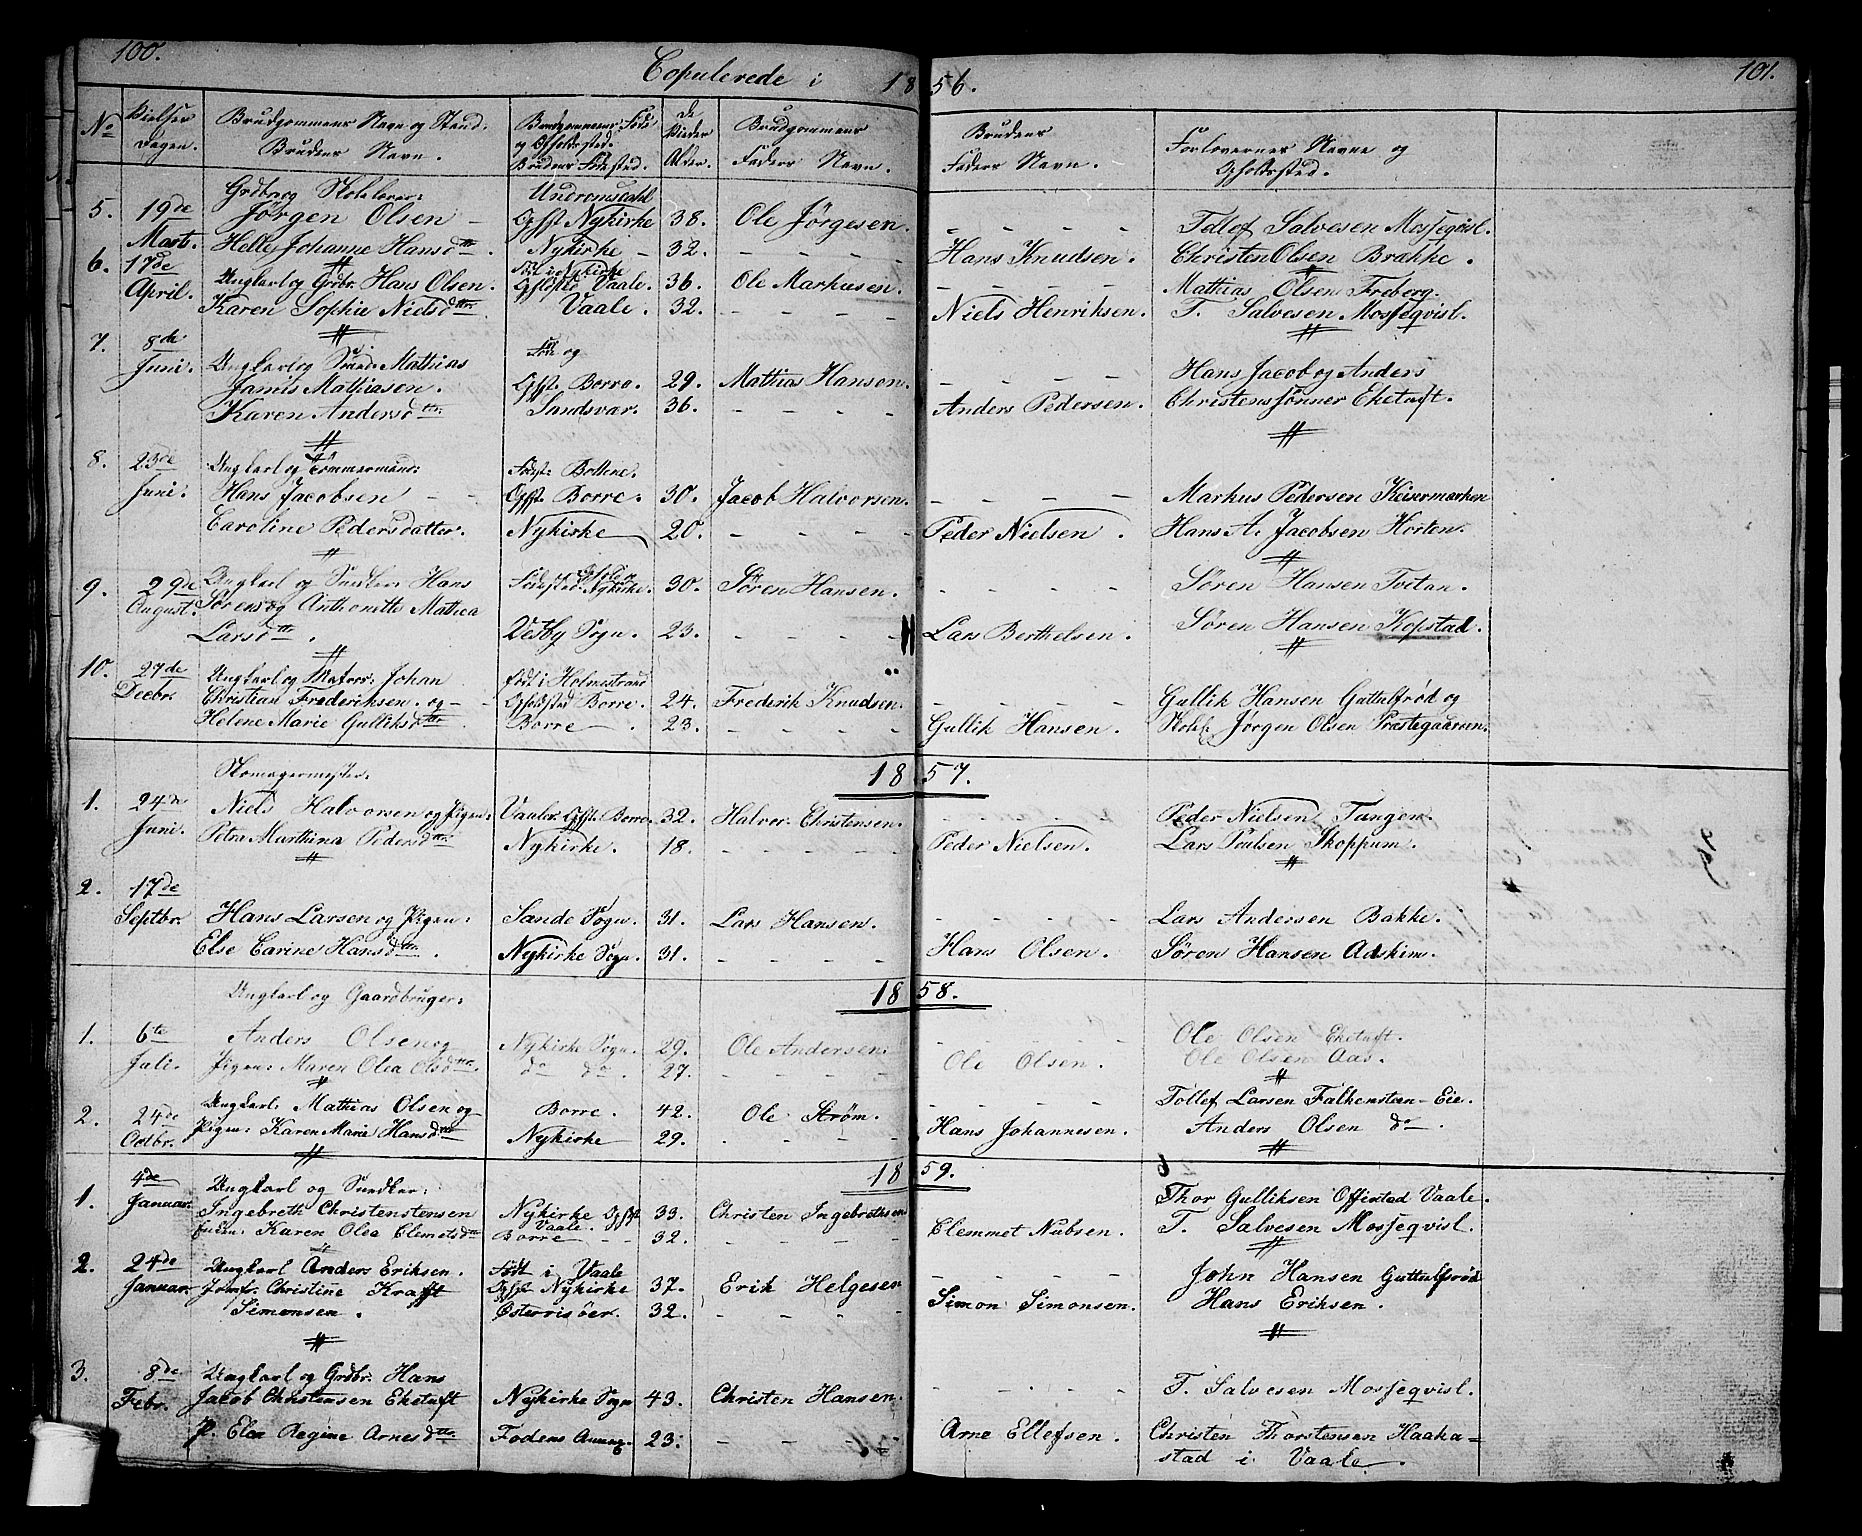 100.
Copulerede i 1856.
101.
No
Vielses Dagen.
Brudgommens Navn og Stand. Brudens Navn.
Brudgommens Føde og Opholdssted. Brudens Fødested.
De Vieders Alder.
Brudgommens Faders Navn.
Brudens Faders Navn.
Forlovernes Navne og Opholdssted.
Grdbr og Skolelærer: Undrumsdal
5. 19de Jørgen Olsen - Opst Nykirke 38. Ole Jørgesen - - - - Tollef Salvesen Mosseqvisl.
Marts. Helle Johanne Hansdttr. Nykirke - 32. - - - - Hans Knudsen. Christen Olsen Brakke.
6. 17de April. Ungkarl og Grdbr. Hans Olsen. Nykirke Vaale. 36. Ole Markusen. - - - - Mathias Olsen Freberg.
Karen Sophie Nielsdttr. Vaale. 32. - - - - Niels Henriksen. T. Salvesen Mosseqvisl.
7. 8de Juni. Ungkarl og Smed: Mathias Fød og Hans Jacob og Anders
Jamts Mathiasen. Opst. Borre. 29. Mathias Hansen. - - - -
Karen Andersdttr. Sandsvær. 36. - - - - Anders Pedersen. Christenssønner Eketuft.
8. 23de Ungkarl og Tømmermand: Fødst: Bottene.
Juni. Hans Jacobsen - - Opst. Borre. 30. Jacob Halvorsen. - - - - Markus Pedersen Keisermarken
Caroline Pedersdatter. Nykirke 20. - - - - Peder Nielsen. Hans A. Jacobsen Horten.
9. 29de Ungkarl og Snedker Hans Fødested Nykirke. 30. Søren Hansen. - - - - Søren Hansen Tveitan.
August. Sørens og Anthonette Mathea
Larsdttr. Vesby Sogn. 23. - - - - Lars Berthelsen. Søren Hansen Kopstad.
10. 27de Ungkarl og Matros: Johan Født i Holmestrand
Decbr. Christian Frederiksen. og - Opholdsted Borre. 24. Frederik Knudsen. - - - - Gullik Hansen Guttulfrød og
Helene Marie Gulliksdttr Borre 23. - - - - Gullik Hansen. Skolel. Jørgen Olsen Præstegaarden.
1857.
Skomagermester:
1. 24de Niels Halvorsen og Pigen: Vaaler. Opst. Borre. 32. Halvor Christensen. - - - - Peder Nielsen Tangen.
Juni. Petra Marthina Pedersdttr. Nykirke. 18. - - - - Peder Nielsen. Lars Poulsen Skoppum.
2. 17de
Septbr. Hans Larsen og Pigen: Sande Sogn. 31. Lars Hansen. - - - - Lars Andersen Bakke.
Else Carine Hansdttr. Nykirke Sogn. 31. - - - - Hans Olsen. Søren Hansen Adskim.
1858.
Ungkarl og Gaardbruger:
1. 6te Anders Olsen og Nykirke Sogn. 29. Ole Andersen. - - - - Ole Olsen Eketuft.
Juli. Pigen: Maren Olea Olsdttr. do do. 27. - - - - Ole Olsen. Ole Olsen Aas.
2. 24de Ungkarl: Mathias Olsen og Borre. 42. Ole Strøm. - - - - Tollef Larsen Falkensteen-Eie.
Octbr. Pigen: Karen Marie Hansdttr Nykirke 29. - - - - Hans Johannesen. Anders Olsen do.
1859.
1. 4de Januar. Ungkarl og Snedker: Thor Gulliksen Offirstad Vaale.
Ingebrett Christenstensen Nykirke Opst Vaale. 33. Christen Ingebrethsen - - - -
Karen Olea Clemetsdttr Borre - - 32. - - - - Clemmet Nubsen. T. Salvesen Mosseqvisl.
2. 24de Ungkarl Anders Eriksen. Født i Vaale
Januar. Jomfr. Christine Krafft Nykirke 37. Erik Helgesen - - - - John Hansen Guttulfrød
Simonsen. Østerrisöer. 32. - - - - Simon Simonsen. Hans Eriksen.
3. 8de Ungkarl og Grdbr. Hans
Febr. Jacob Christensen Eketuft Nykirke Sogn 43. Christen Hansen. - - - - T. Salvesen Mosseqvisl.
P. Elea Regine Arnesdttr. Fodens 23. - - - - Arne Ellefsen. Christen Thorstensen Haaka=
stad i Vaale.